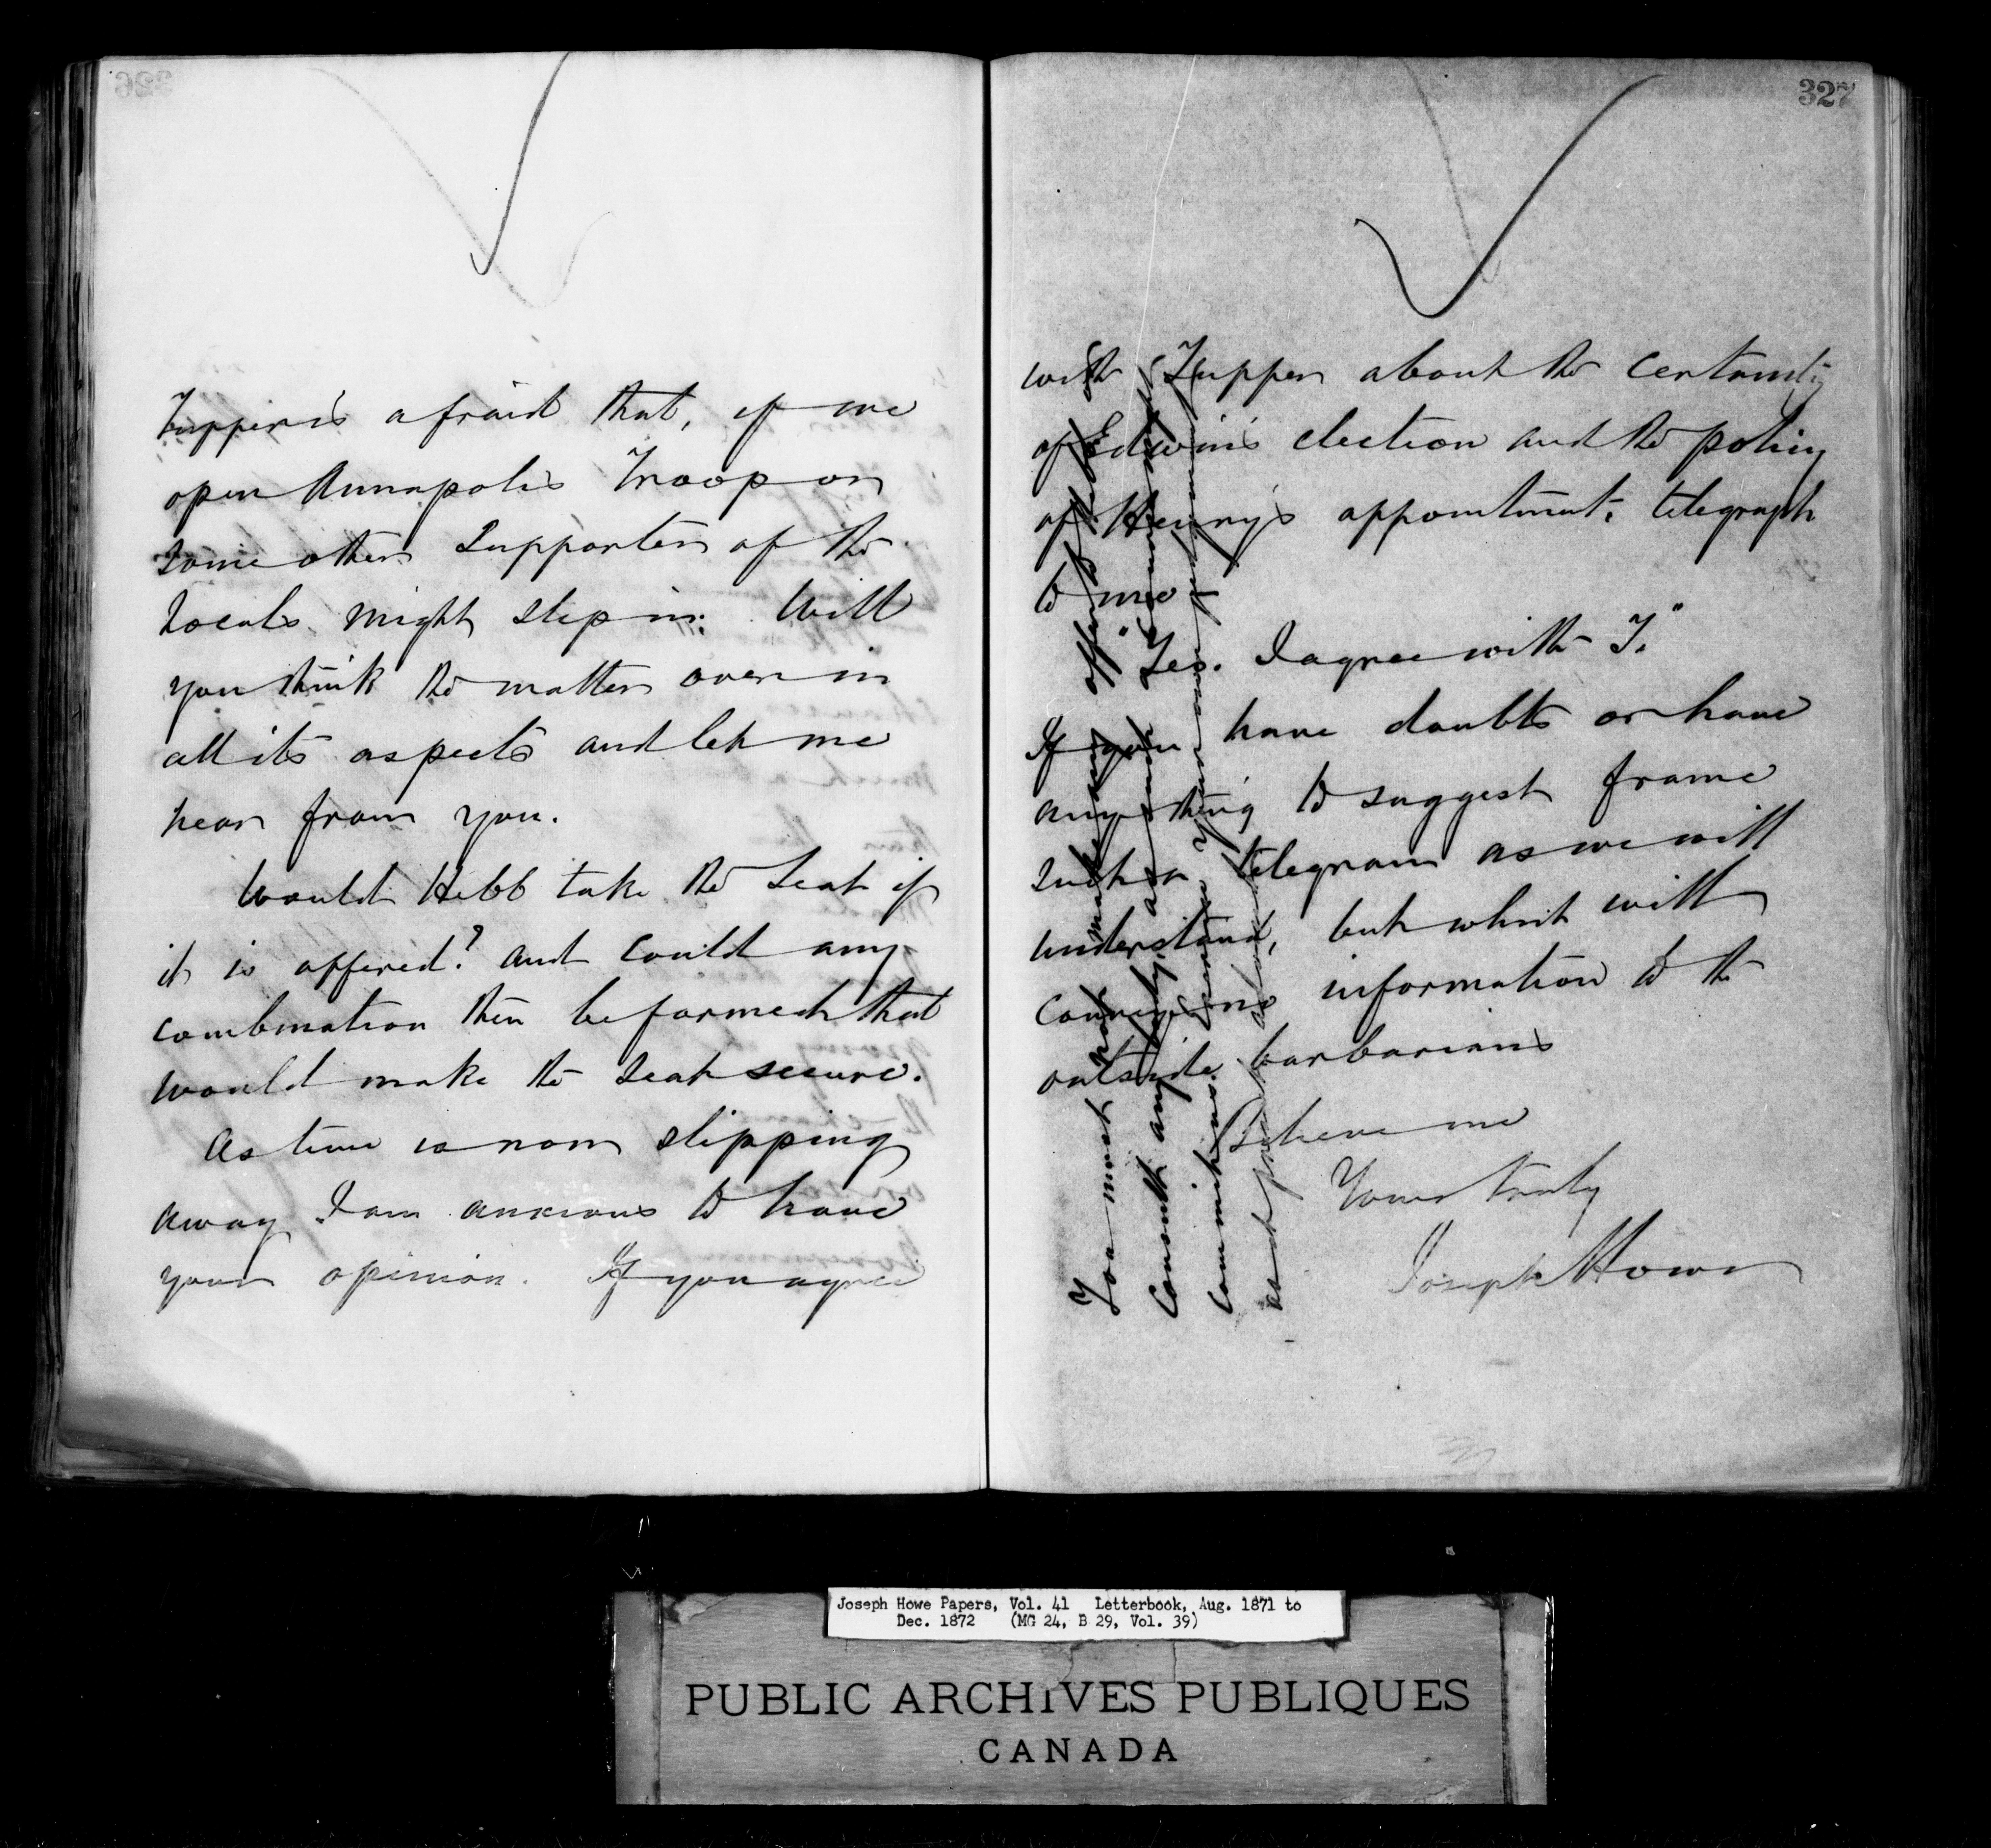 326
Tupper is afraid that, if we
open Annapolis Troop or
some other Supporter of the
Locals might step in. Will
you think the matter over in
all its aspects and let me
hear from you.
Would Hebb take the Seat if
it is offered? and could any
combination then be formed that
would make the Seat secure.
As time is now slipping
away I am anxious to have
your opinion. If you agree
327
with Tupper about the certainty
of Edwin's election and the policy
of Henry's appointment, telegraph
to me
"Yes. I agree with T."
If you have doubts or have
anything to suggest frame
such a telegram as we will
understand, but which will
convey no information to the
outside barbarians
Believe me
Yours truly
Joseph Howe
You must not make any offer
Consult any body, as
Commit us.
Joseph Howe Papers, Vol. 41 Letterbook, Aug. 1871 to
Dec. 1872 (MG 24, B 29, Vol. 39)
PUBLIC ARCHIVES PUBLIQUES
CANADA